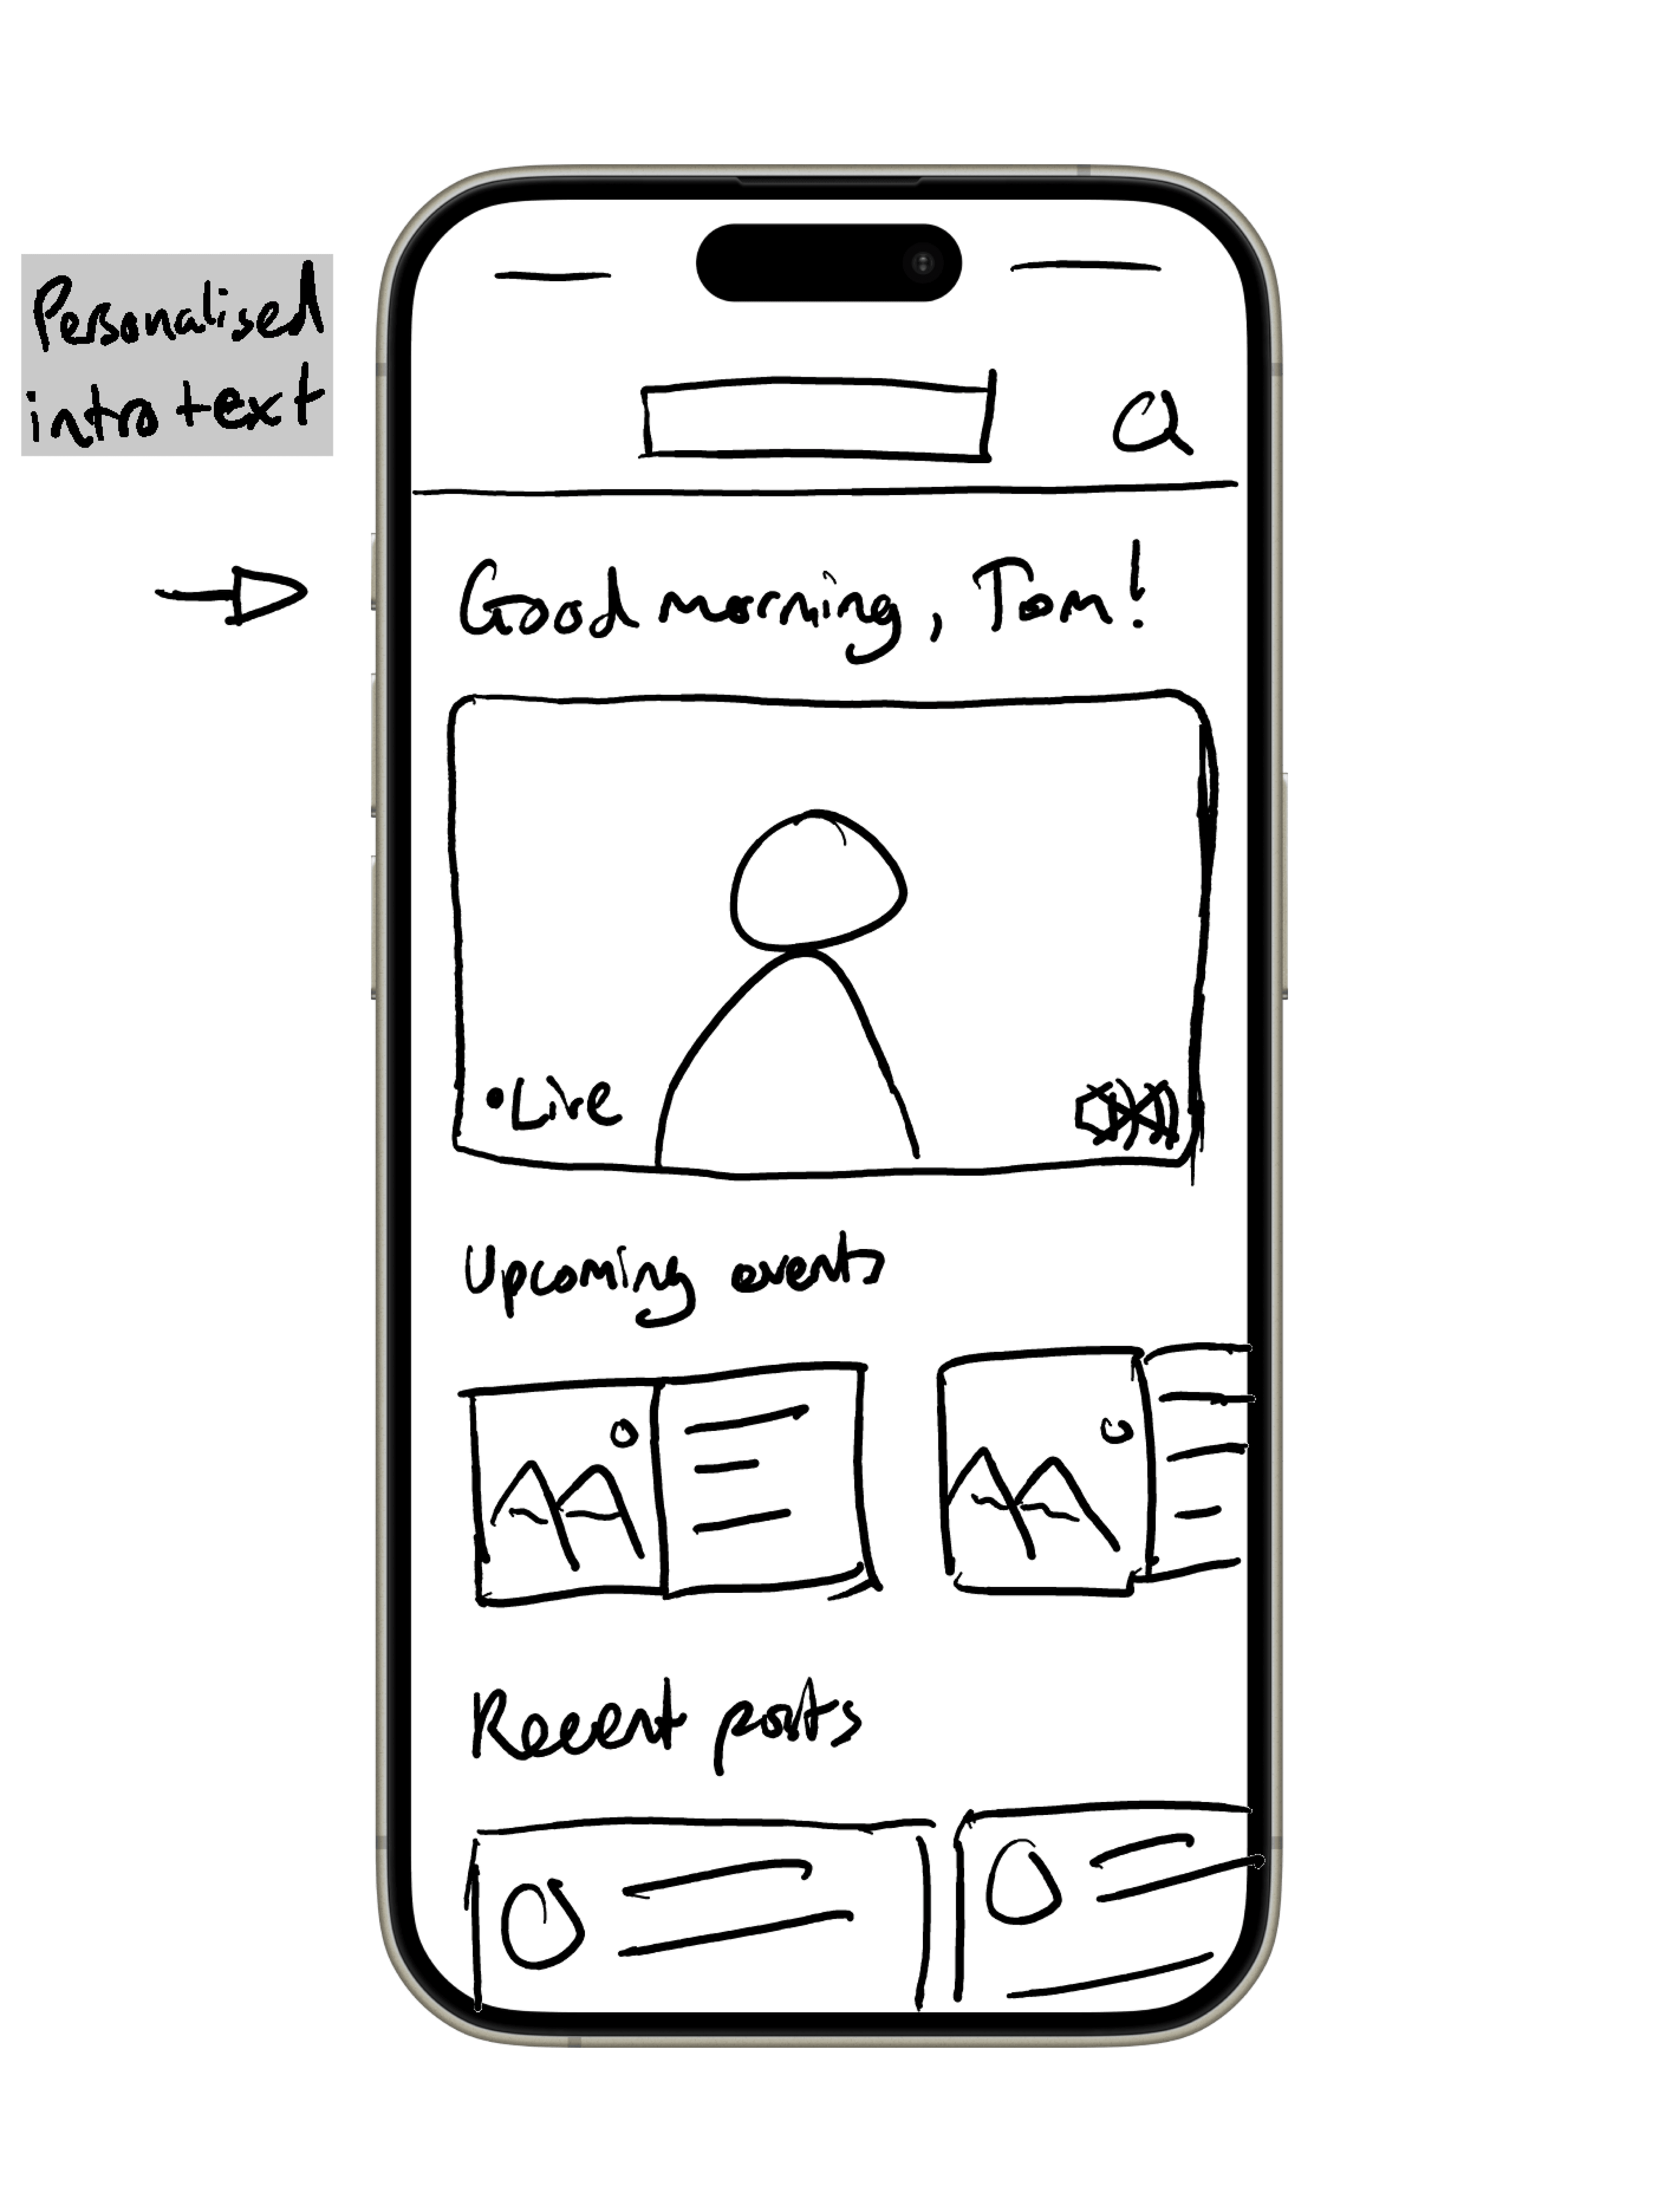 Personalised
intro text
Good morning, Tom!
•Live
Upcoming events
Recent posts